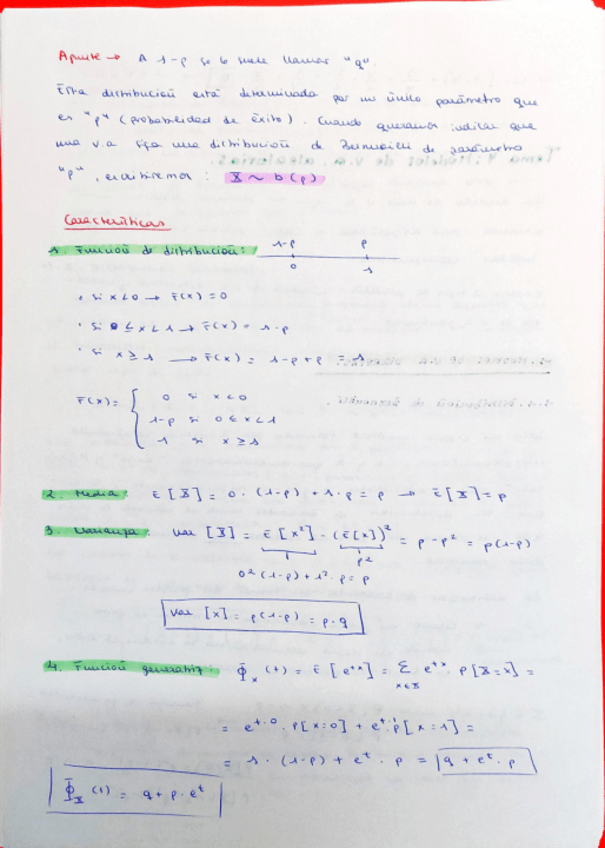 Apunte → A 1-p se le suele llamar "q".
Esta distribución está determinada por un único parámetro que
es "p" (probabilidad de éxito). Cuando queramos indicar que
una v.a siga una distribución de Bernoulli de parámetro
"p", escribiremos: X ~ b(p)
Características
1. Función de distribución: 1-p p
0 1
• si x<0 → F(x) = 0
• si 0 ≤ x < 1 → F(x) = 1-p
• si x ≥ 1 → F(x) = 1-p+p = 1
F(x) = { 0 si x<0
1-p si 0≤x<1
1 si x≥1
2. Media: E[X] = 0·(1-p) + 1·p = p → E[X] = p
3. Varianza: Var [X] = E[x²] - (E[x])² = p-p² = p(1-p)
p²
0²(1-p)+1²·p = p
Var [x] = p(1-p) = p·q
4. Función generatriz: Φx(t) = E[e^tx] = Σ e^tx · P[X=x] =
x∈X
= e^t·0 · P[x=0] + e^t·1 P[x=1] =
= 1·(1-p) + e^t · p = q + e^t · p
ΦX(t) = q + p·e^t